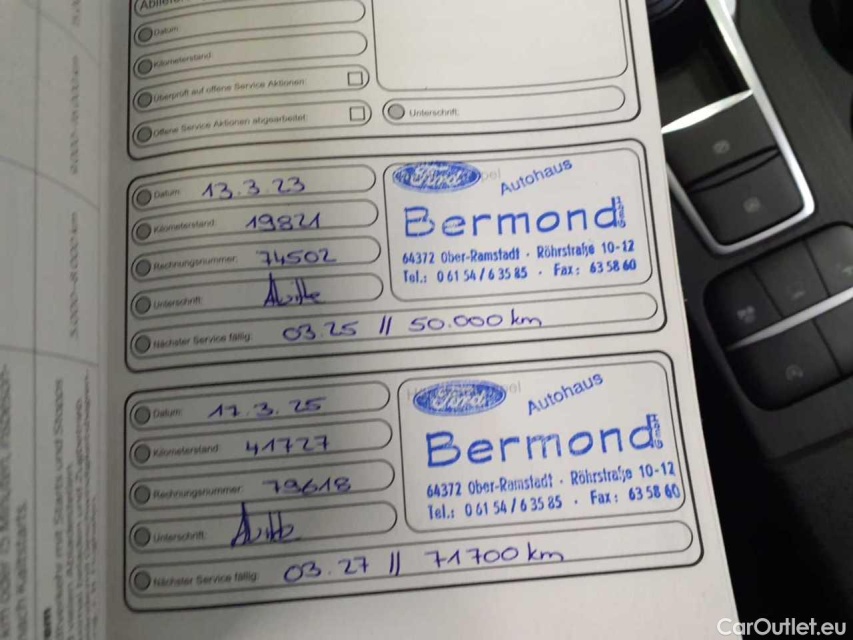 Datum:
Kilometerstand:
Überprüft auf offene Service Aktionen:
Offene Service Aktionen abgearbeitet:
Unterschrift:
Datum: 13.3.23
Kilometerstand: 19821
Rechnungsnummer: 74502
Unterschrift:
Nächster Service fällig: 03.25 // 50.000 km
Ford
Autohaus
Bermond
64372 Ober-Ramstadt · Röhrstraße 10-12
Tel.: 0 61 54 / 6 35 85 · Fax: 63 58 60
Datum: 17.3.25
Kilometerstand: 41727
Rechnungsnummer: 79618
Unterschrift:
Nächster Service fällig: 03.27 // 71700 km
Ford
Autohaus
Bermond
64372 Ober-Ramstadt · Röhrstraße 10-12
Tel.: 0 61 54 / 6 35 85 · Fax: 63 58 60
CarOutlet.eu